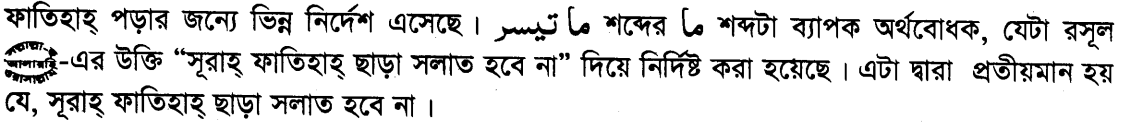 ফাতিহাহ্ পড়ার জন্যে ভিন্ন নির্দেশ এসেছে। ما تيسر শব্দের ما শব্দটা ব্যাপক অর্থবোধক, যেটা রসূল
সল্লাল্লা-হু আলাইহি ওয়াসাল্লাম-এর উক্তি “সূরাহ্ ফাতিহাহ্ ছাড়া সলাত হবে না” দিয়ে নির্দিষ্ট করা হয়েছে। এটা দ্বারা প্রতীয়মান হয়
যে, সূরাহ্ ফাতিহাহ্ ছাড়া সলাত হবে না।